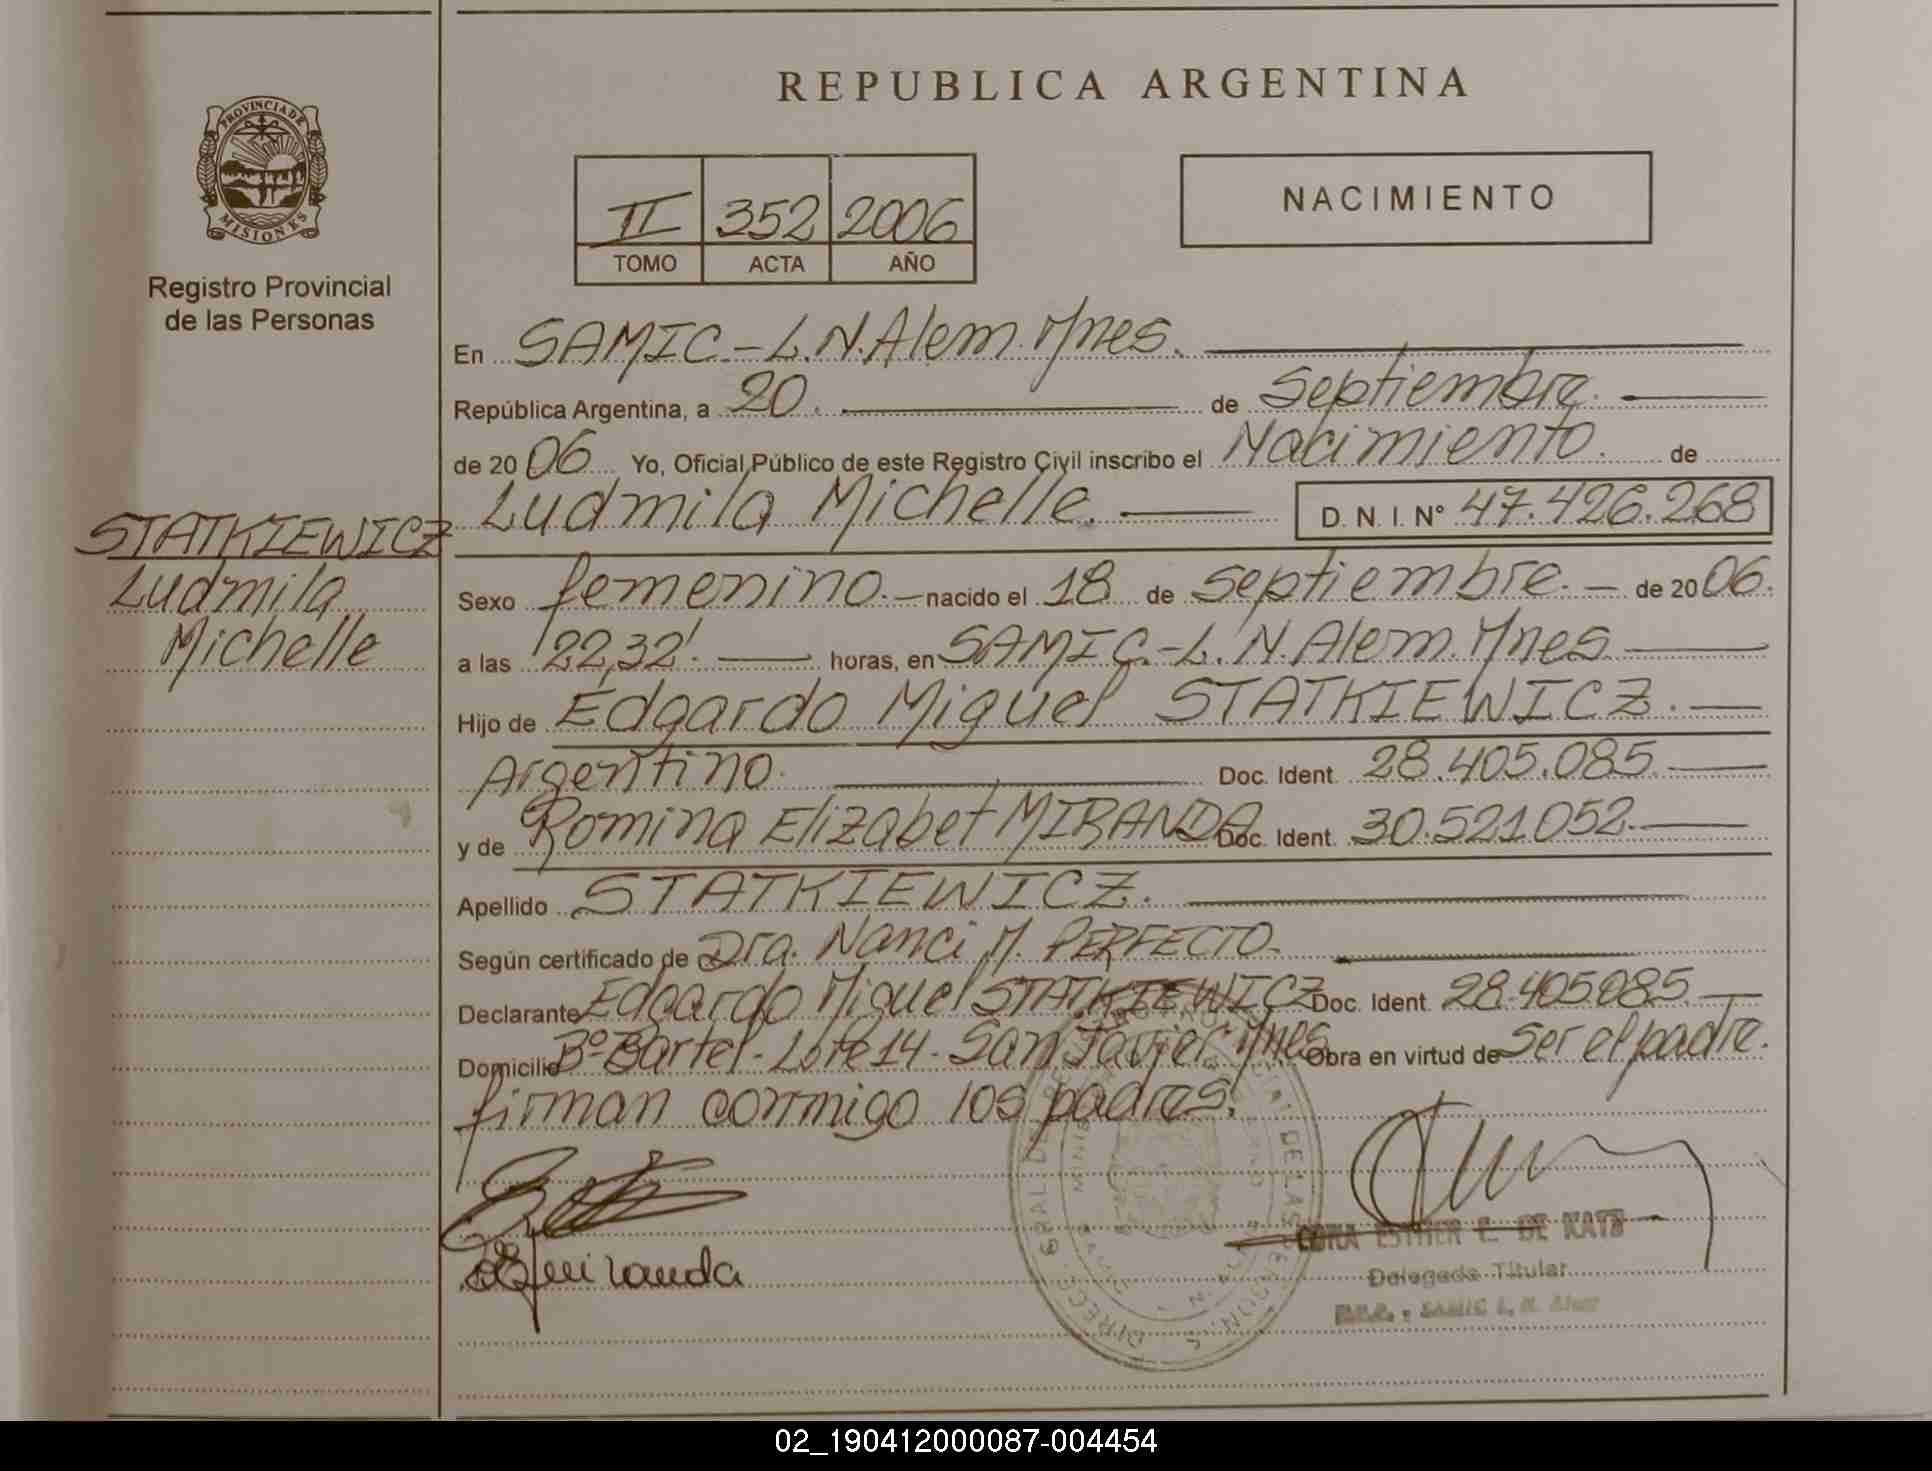 REPUBLICA ARGENTINA
PROVINCIA DE
MISIONES
Registro Provincial
de las Personas
II 352 2006
TOMO ACTA AÑO
NACIMIENTO
En SAMIC.-L.N.Alem.Mnes.
República Argentina, a 20. de Septiembre.
de 2006 Yo, Oficial Público de este Registro Civil inscribo el Nacimiento. de
Ludmila Michelle. D. N. I. Nº 47.426.268
STATKIEWICZ
Ludmila
Michelle
Sexo femenino.- nacido el 18 de septiembre.- de 2006.
a las 22,32'. horas, en SAMIC.-L.N.Alem.Mnes
Hijo de Edgardo Miguel STATKIEWICZ.
Argentino. Doc. Ident. 28.405.085.
y de Romina Elizabet MIRANDA Doc. Ident. 30.521.052.
Apellido STATKIEWICZ.
Según certificado de Dra. Nanci M. PERFECTO.
Declarante Edgardo Miguel STATKIEWICZ Doc. Ident. 28.405.085.
Domicilio Bº Bartel- Lote 14- San Javier Mnes Obra en virtud de Ser el padre.
firman conmigo los padres.
Miranda
ESTHER E. DE KATZ
Delegada Titular
SAMIC L. N. Alem
02_190412000087-004454